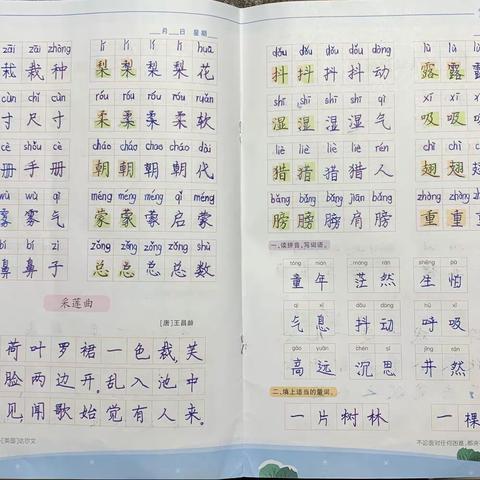 月 日 星期
zāi zāi zhòng
栽 栽 种
lí lí lí lí huā
梨 梨 梨 梨 花
cùn chǐ cùn
寸 尺 寸
róu róu róu róu ruǎn
柔 柔 柔 柔 软
cè shǒu cè
册 手 册
cháo cháo cháo dài
朝 朝 朝 朝 代
wù wù qì
雾 雾 气
méng méng méng qǐ méng
蒙 蒙 蒙 启 蒙
bí bí zi
鼻 鼻 子
zǒng zǒng zǒng zǒng shù
总 总 总 总 数
采莲曲
[唐]王昌龄
荷叶罗裙一色裁,芙
脸两边开。乱入池中
见,闻歌始觉有人来。
dǒu dǒu dǒu dǒu dòng
抖 抖 抖 抖 动
lù lù lù
露 露 露
shī shī shī shī qì
湿 湿 湿 湿 气
xī xī
吸 吸 吸
liè liè liè liè rén
猎 猎 猎 猎 人
chì chì chì
翅 翅 翅
bǎng bǎng bǎng jiān bǎng
膀 膀 膀 肩 膀
zhòng zhòng zhòng
重 重 重
一、读拼音,写词语。
tóng nián máng rán shēng pà
童年 茫然 生怕
qì xī dǒu dòng hū xī
气息 抖动 呼吸
gāo yuǎn chén sī jǐng rán
高远 沉思 井然
二、填上适当的量词。
一片树林 一棵
[英国]达尔文